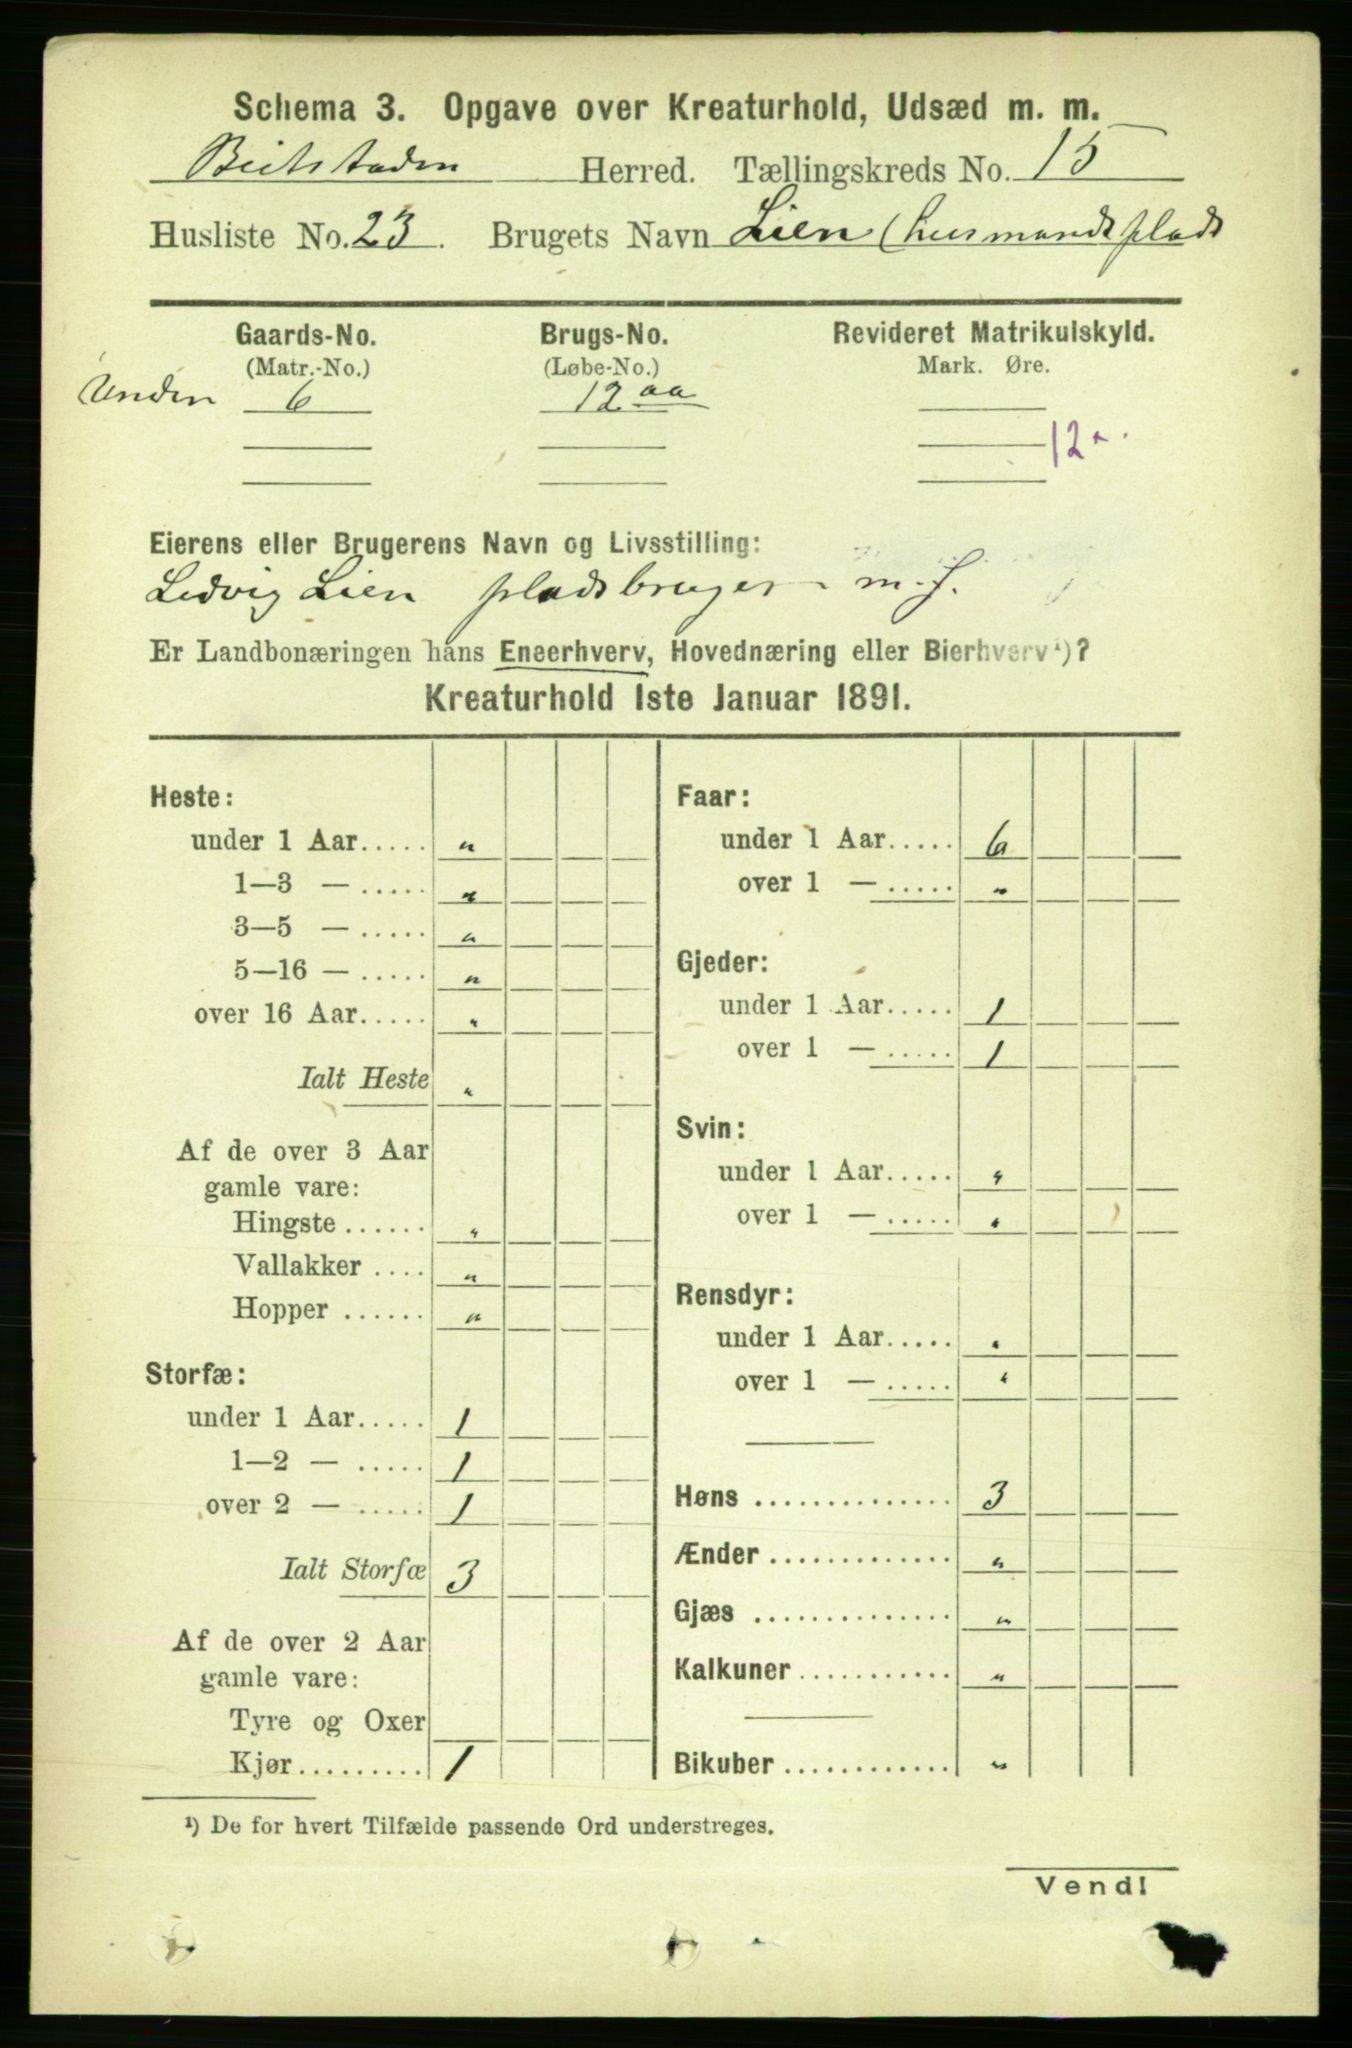 Schema 3. Opgave over Kreaturhold, Udsæd m. m.
Beitstaden Herred. Tællingskreds No. 15
Husliste No. 23. Brugets Navn Lien (husmandsplads
Gaards-No. Brugs-No. Revideret Matrikulskyld.
(Matr.-No.) (Løbe-No.) Mark. Øre.
Under 6 12 aa
12
Eierens eller Brugerens Navn og Livsstilling:
Ludvig Lien pladsbruger m. f.
Er Landbonæringen hans Eneerhverv, Hovednæring eller Bierhverv ¹)?
Kreaturhold 1ste Januar 1891.
Heste:
under 1 Aar..... "
1—3 — ..... "
3—5 — ..... "
5—16 — ..... "
over 16 Aar..... "
Ialt Heste "
Af de over 3 Aar
gamle vare:
Hingste ...... "
Vallakker .... "
Hopper ...... "
Storfæ:
under 1 Aar..... 1
1—2 — ..... 1
over 2 — ..... 1
Ialt Storfæ 3
Af de over 2 Aar
gamle vare:
Tyre og Oxer
Kjør......... 1
Faar:
under 1 Aar..... 6
over 1 — ..... "
Gjeder:
under 1 Aar..... 1
over 1 — ..... 1
Svin:
under 1 Aar..... "
over 1 — ..... "
Rensdyr:
under 1 Aar..... "
over 1 — ..... "
Høns .............. 3
Ænder ............. "
Gjæs .............. "
Kalkuner ........... "
Bikuber ............. "
¹) De for hvert Tilfælde passende Ord understreges.
Vend!